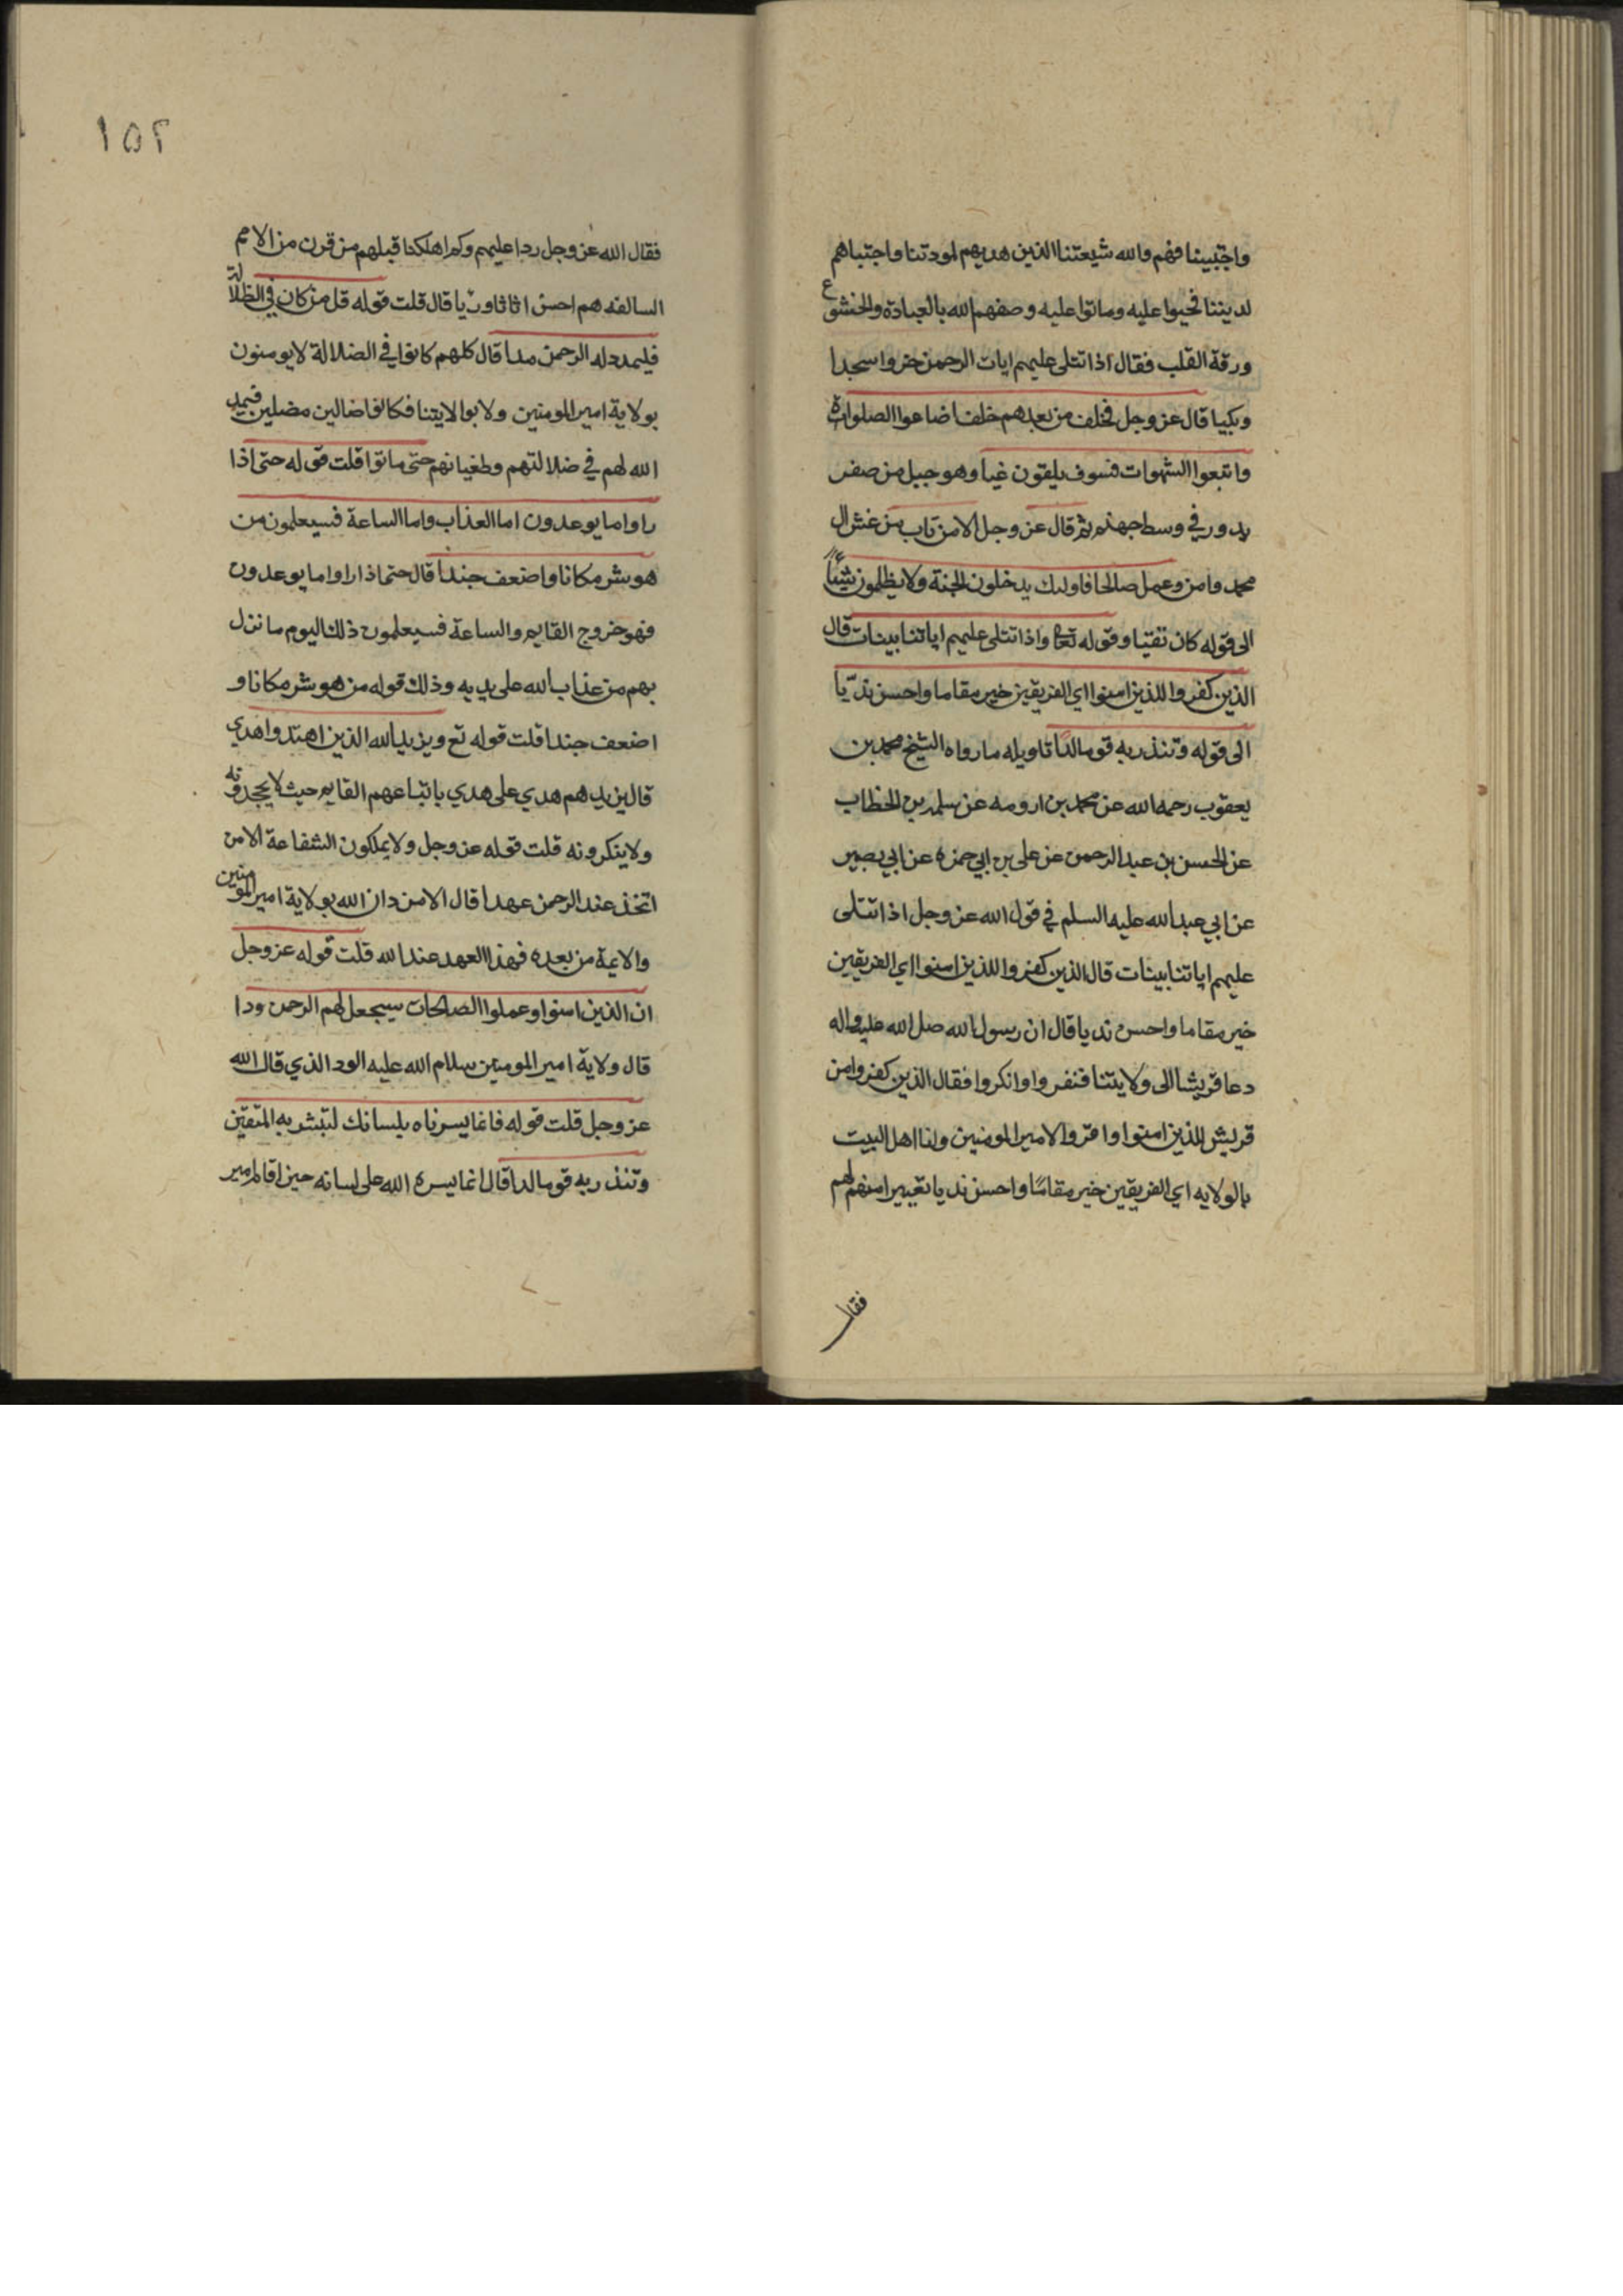 واجتبينا فهم والله شيعتنا الذين هديهم لمودتنا واجتباهم
لديننا فحيوا عليه وماتوا عليه وصفهم الله بالعبادة والخشوع
ورقة القلب فقال اذا تتلى عليهم ايات الرحمن خروا سجدا
وبكيا قال عز وجل فخلف من بعدهم خلف اضاعوا الصلواة
واتبعوا الشهوات فسوف يلقون غيا وهو جبل من صفر
يدور في وسط جهنم ثم قال عز وجل الا من تاب من غش ال
محمد وامن وعمل صالحا فاولىك يدخلون الجنة ولا يظلمون شيئا
الى قوله كان تقيا وقوله تعا واذا تتلى عليهم اياتنا بينات قال
الذين كفروا للذين امنوا اي الفريقين خير مقاما واحسن نديّا
الى قوله وتنذر به قوما لدّا تاويله ما رواه الشيخ محمد بن
يعقوب رحمه الله عن محمد بن ارومه عن سلمه بن الخطاب
عن الحسن بن عبد الرحمن عن على بن ابي حمزه عن ابي بصير
عن ابي عبد الله عليه السلم في قول الله عز وجل اذا تتلى
عليهم اياتنا بينات قال الذين كفروا للذين امنوا اي الفريقين
خير مقاما واحسن نديا قال ان رسول الله صل الله عليه واله
دعا قريشا الى ولايتنا فنفروا وانكروا فقال الذين كفروا من
قريش للذين امنوا واقروا لامير المومنين ولنا اهل البيت
بالولايه اي الفريقين خير مقامًا واحسن نديا تعييرا منهم لهم
فقال
١٥٢
فقال الله عز وجل ردا عليهم وكم اهلكنا قبلهم من قرن من الامم
السالفه هم احسن اثاثا وريّا قال قلت قوله قل من كان في الظلالة
فليمدد له الرحمن مدا قال كلهم كانوا في الضلالة لا يومنون
بولاية امير المومنين ولا بولايتنا فكانوا ضالين مضلين فيمد
الله لهم في ضلالتهم وطغيانهم حتى ماتوا قلت قوله حتى اذا
راوا ما يوعدون اما العذاب واما الساعة فسيعلمون من
هو شر مكانا واضعف جندا قال حتما ذا راوا ما يوعدون
فهو خروج القايم والساعة فسيعلمون ذلك اليوم ما نزل
بهم من عذاب الله على يديه وذلك قوله من هو شر مكانا و
اضعف جندا قلت قوله تع ويزيد الله الذين اهتدوا هدي
قال يزيدهم هدي على هدي باتباعهم القايم حيث لا يجحدونه
ولا ينكرونه قلت قوله عز وجل ولا يملكون الشفاعة الا من
اتخذ عند الرحمن عهدا قال الا من دان الله بولاية امير المومنين
والايمة من بعده فهذا العهد عند الله قلت قوله عز وجل
ان الذين امنوا وعملوا الصالحات سيجعل لهم الرحمن ودا
قال ولاية امير المومنين سلام الله عليه الود الذي قال الله
عز وجل قلت قوله فانما يسرناه بلسانك لتبشر به المتقين
وتنذر به قوما لدا قال انما يسره الله على لسانه حين اقام امير